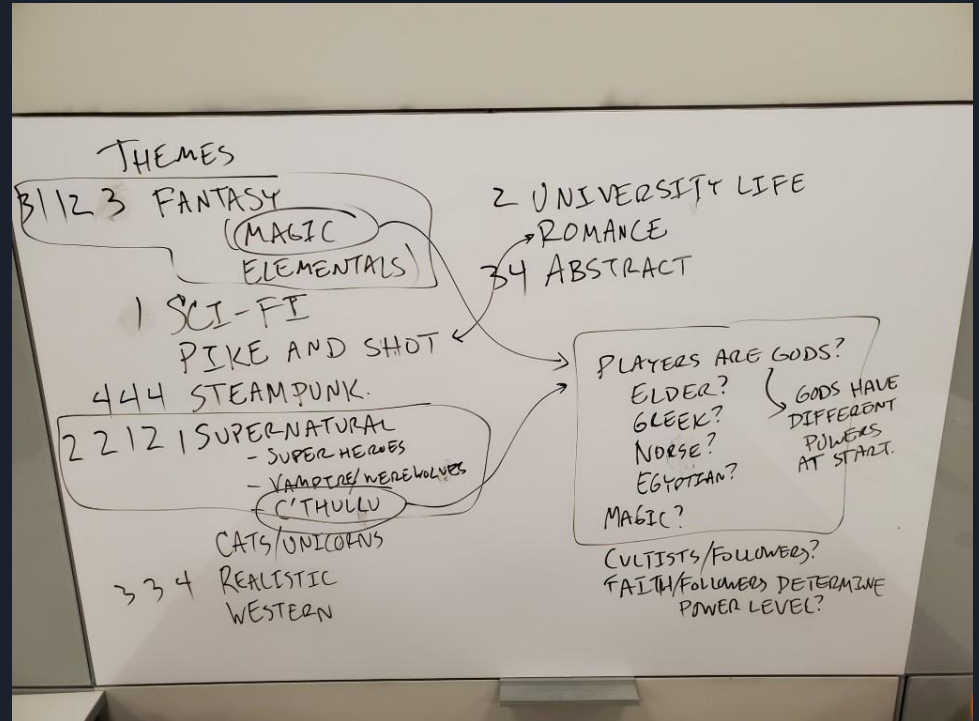 THEMES
31123 FANTASY
(MAGIC
ELEMENTALS)
1 SCI-FI
PIKE AND SHOT
444 STEAMPUNK.
22121 SUPERNATURAL
- SUPER HEROES
- VAMPIRE/WEREWOLVES
- C'THULLU
CATS/UNICORNS
334 REALISTIC
WESTERN
2 UNIVERSITY LIFE
ROMANCE
34 ABSTRACT
PLAYERS ARE GODS?
ELDER?
GREEK?
NORSE?
EGYPTIAN?
MAGIC?
GODS HAVE
DIFFERENT
POWERS
AT START.
CULTISTS/FOLLOWERS?
FAITH/FOLLOWERS DETERMINE
POWER LEVEL?